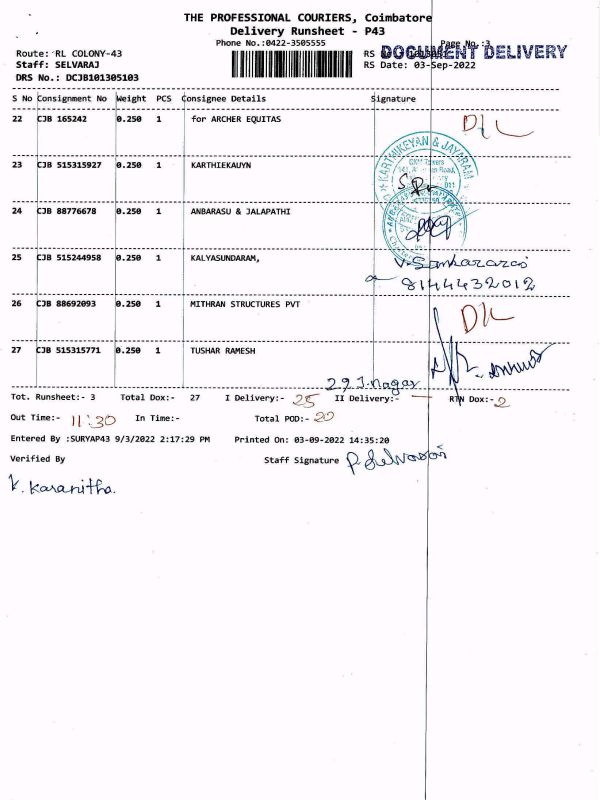 THE PROFESSIONAL COURIERS, Coimbatore
Delivery Runsheet - P43
Phone No.:0422-3505555
Page No.:3
Route: RL COLONY-43
RS No
DOCUMENT DELIVERY
Staff: SELVARAJ
RS Date: 03-Sep-2022
DRS No.: DCJB101305103
S No Consignment No Weight PCS Consignee Details Signature
22 CJB 165242 0.250 1 for ARCHER EQUITAS
KARTHIKEYAN & JAYARAM
23 CJB 515315927 0.250 1 KARTHIEKAUYN
24 CJB 88776678 0.250 1 ANBARASU & JALAPATHI
25 CJB 515244958 0.250 1 KALYASUNDARAM,
V. Sankararaj
8144432012
26 CJB 88692093 0.250 1 MITHRAN STRUCTURES PVT
27 CJB 515315771 0.250 1 TUSHAR RAMESH
29 J. nagar
Tot. Runsheet:- 3 Total Dox:- 27 I Delivery:- 25 II Delivery:- — RTN Dox:- 2
Out Time:- 11:30 In Time:- Total POD:- 20
Entered By :SURYAP43 9/3/2022 2:17:29 PM Printed On: 03-09-2022 14:35:20
Verified By Staff Signature P. Selvaraj
K. Karanitha.